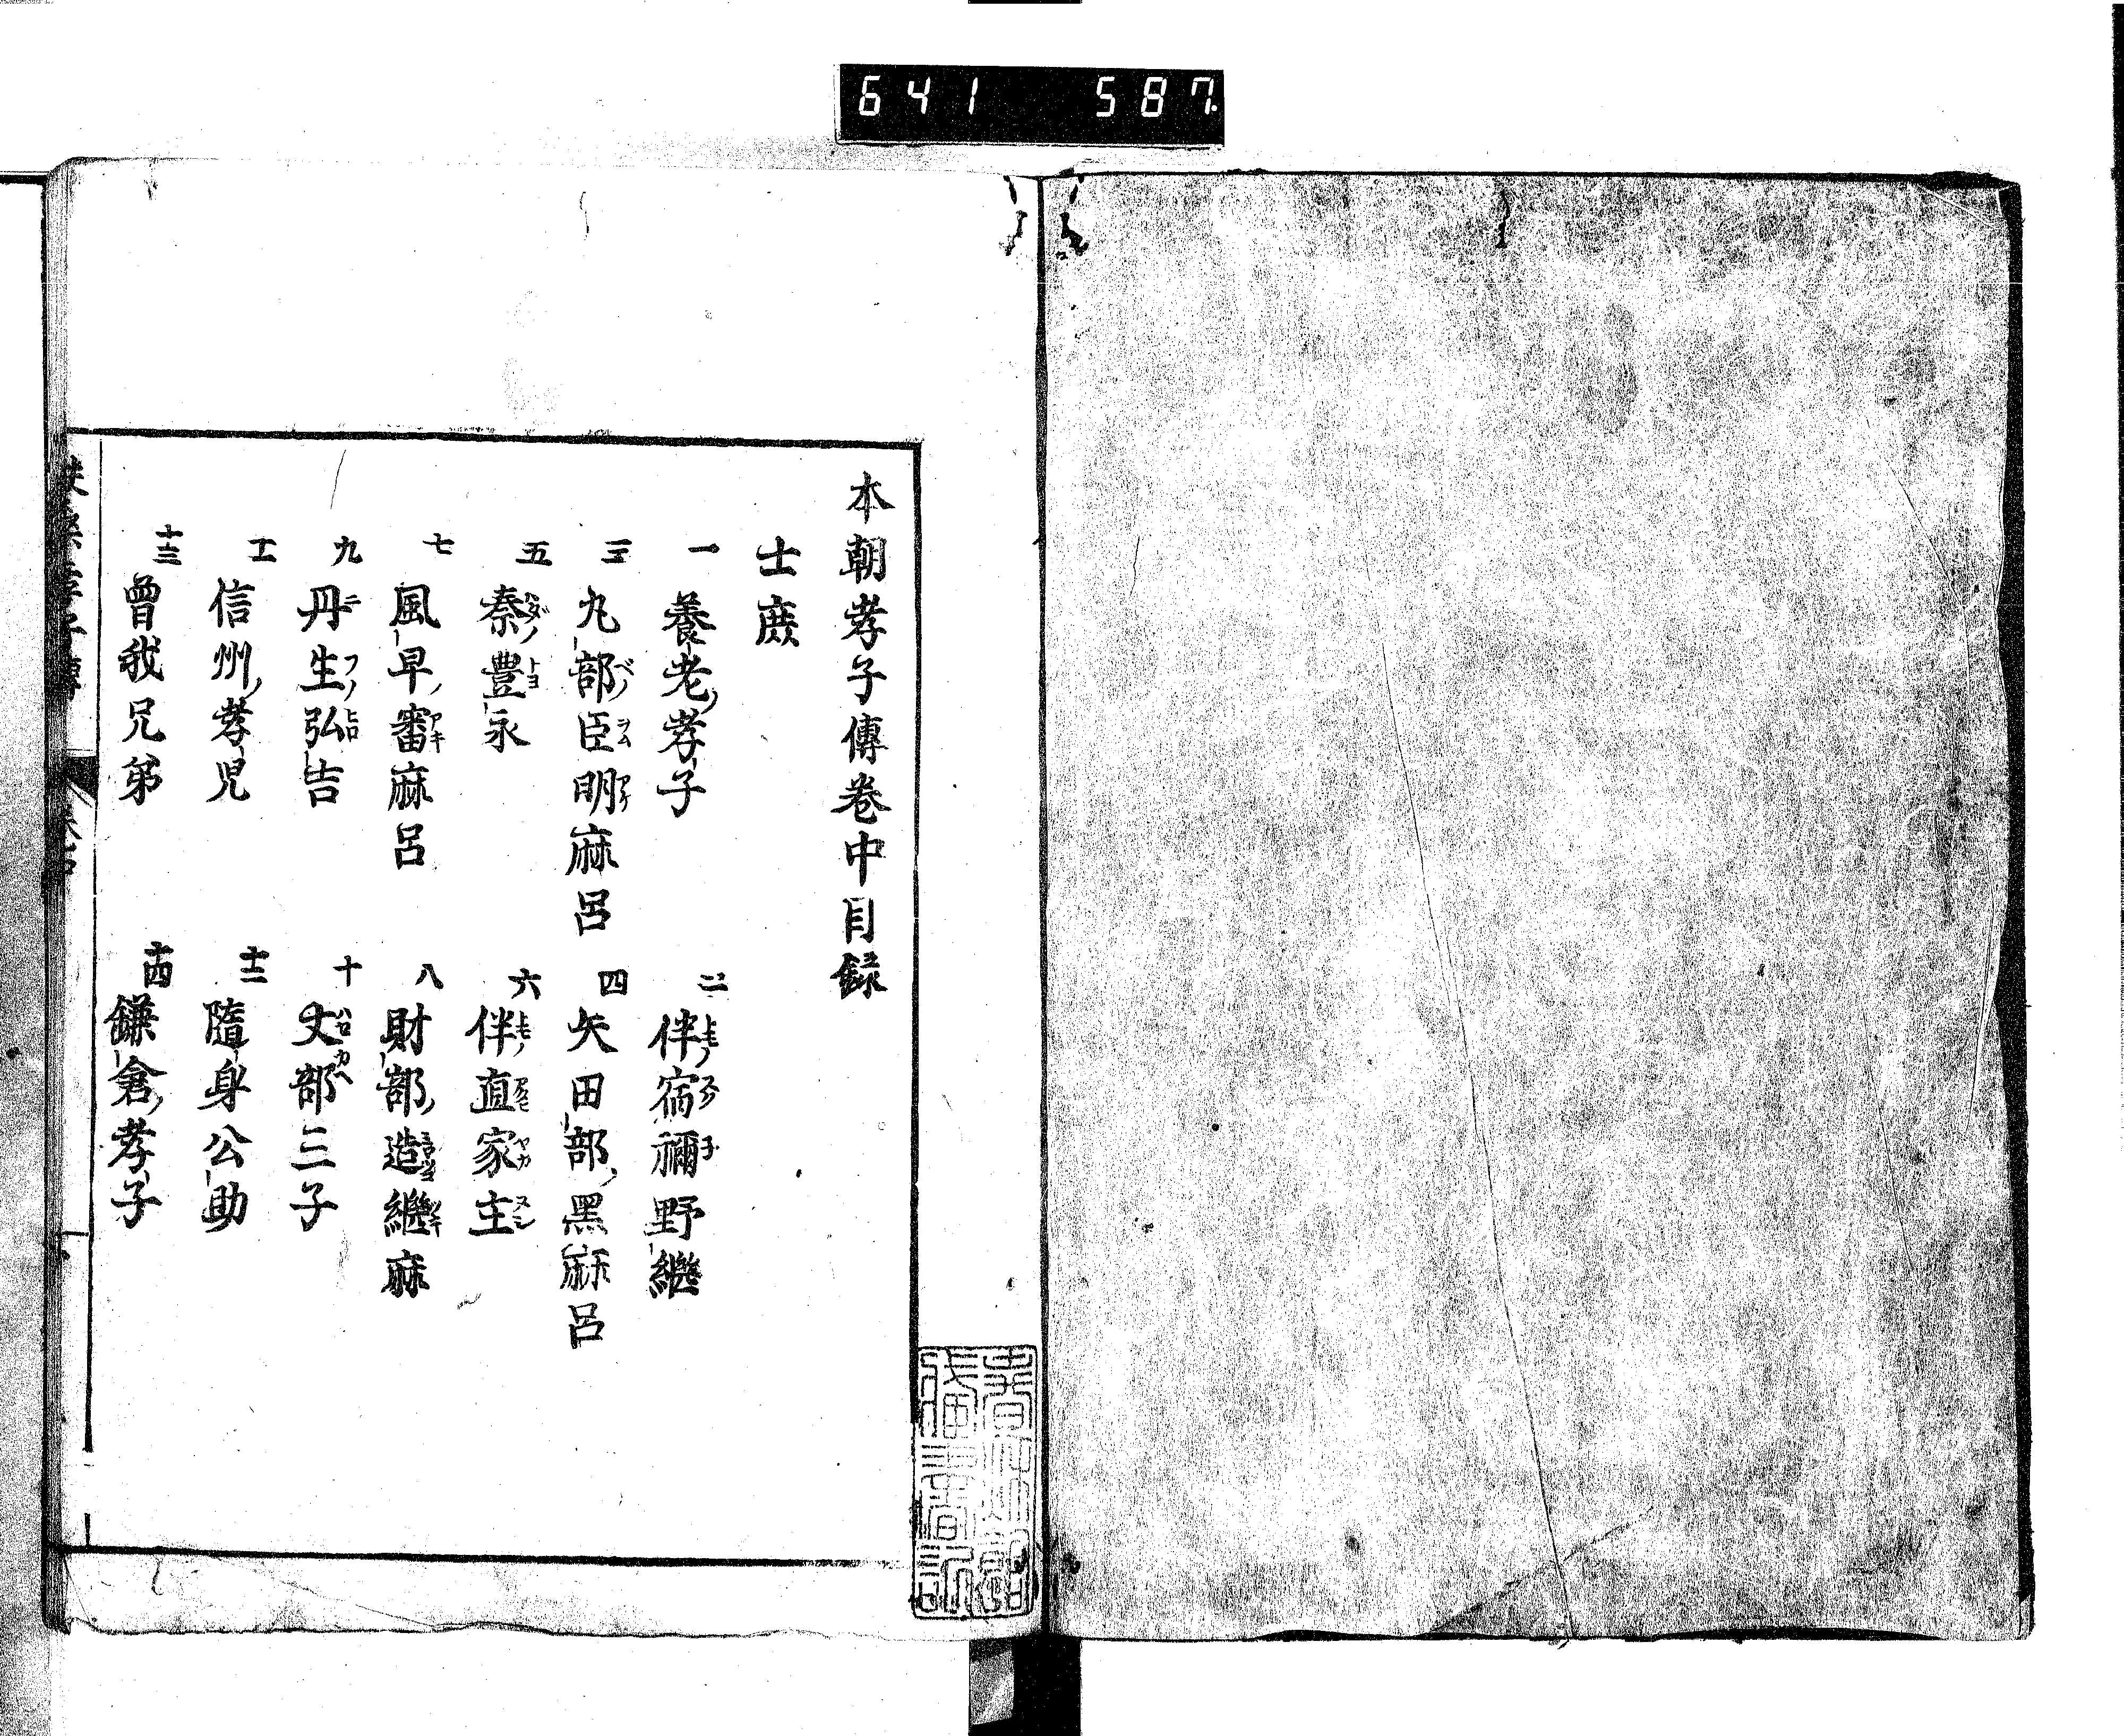 641 587
本朝孝子傳卷中目録
士庶
一 養老孝子
二 伴宿禰野繼
三 丸部臣明麻呂
四 矢田部黑麻呂
五 秦豊永
六 伴直家主
七 風早審麻呂
八 財部造繼麻
九 丹生弘吉
十 丈部三子
十一 信州孝児
十二 隨身公助
十三 曾我兄弟
十四 鎌倉孝子